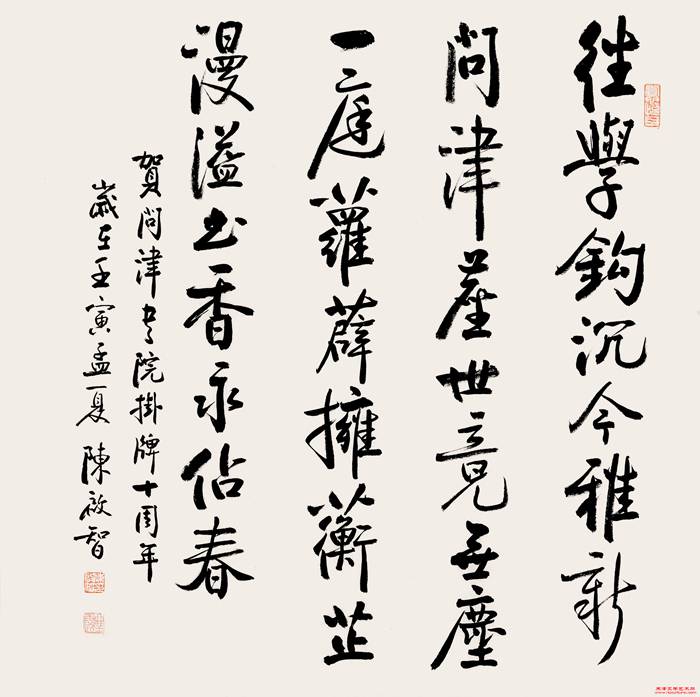 往學鈎沉今雅新
問津世竟無塵
一庭蘿薜擁蘅芷
漫溢书香永佔春
賀問津书院掛牌十周年
歲在壬寅孟夏 陳啟智